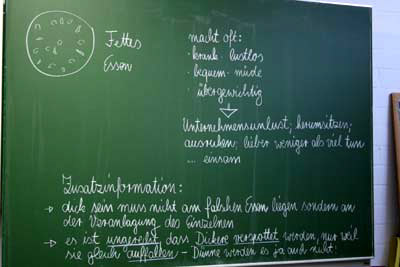 Fettes
Essen
macht oft:
· krank · lustlos
· bequem · müde
· übergewichtig
Unternehmensunlust, herumsitzen,
ausruhen, lieber weniger als viel tun
... einsam
Zusatzinformation:
→ dick sein muss nicht am falschen Essen liegen sondern an
der Veranlagung des Einzelnen
→ es ist ungerecht dass Dickere verspottet werden, nur weil
sie gleich auffallen - Dünne werden es ja auch nicht!